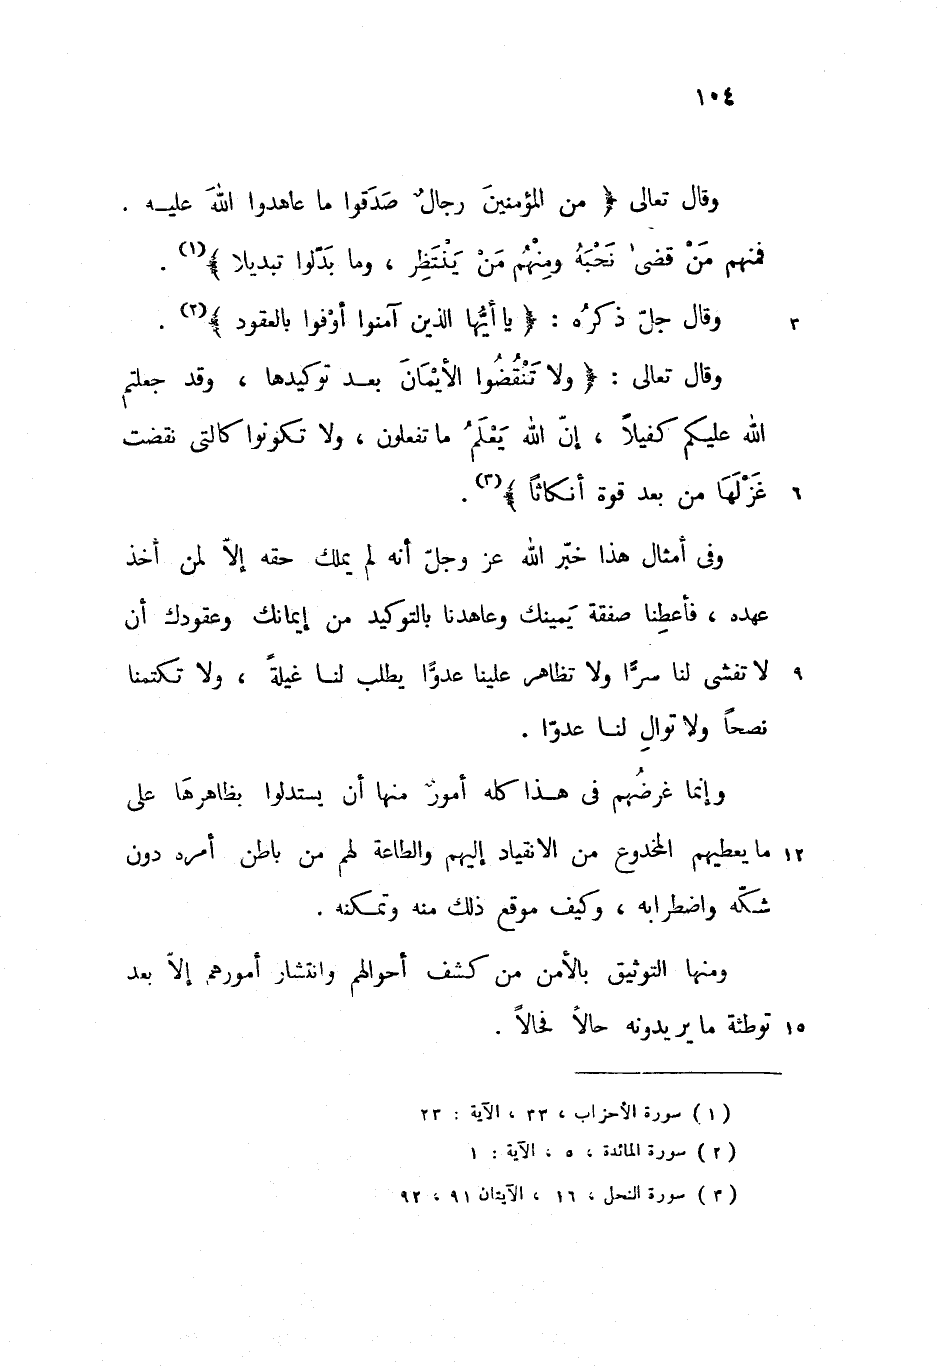 ١٠٤
وقال تعالى ﴿ من المؤمنينَ رجالٌ صَدَقوا ما عاهدوا اللهَ عليـه .
فمنهم مَنْ قضىٰ نَحْبَهُ ومِنْهُم مَنْ يَنْتَظِر ، وما بَدّلوا تبديلا ﴾(١) .
٣ وقال جلّ ذكرُه : ﴿ يا أيُّها الذين آمنوا أوْفوا بالعقود ﴾(٢) .
وقال تعالى : ﴿ ولا تَنْقُضُوا الأَيْمَانَ بعـد توكيدها ، وقد جعلتم
الله عليكم كفيلاً ، إنّ الله يَعْلَمُ ما تفعلون ، ولا تكونوا كالتى نقضت
٦ غَزْلَهَا من بعد قوة أنكاثاً ﴾(٣) .
وفى أمثال هذا خبّر الله عز وجلّ أنه لم يملك حقه إلاّ لمن أخذ
عهده ، فأعطِنا صفقة يَمينك وعاهدنا بالتوكيد من إيمانك وعقودك أن
٩ لا تفشى لنا سرًّا ولا تظاهر علينا عدوًّا يطلب لنـا غيلةً ، ولا تكتمنا
نصحاً ولا توالِ لنـا عدوّا .
وإنما غرضُهم فى هـذا كله أمورٌ منها أن يستدلوا بظاهرهَا على
١٢ ما يعطيهم المخدوع من الانقياد إليهم والطاعة لهم من باطن أمره دون
شكّه واضطرابه ، وكيف موقع ذلك منه وتمـكنه .
ومنها التوثيق بالأمن من كشف أحوالهم وانتشار أمورهم إلاّ بعد
١٥ توطئة ما يريدونه حالاً فحالاً .
(١) سورة الأحزاب ، ٣٣ ، الآية : ٢٣
(٢) سورة المائدة ، ٥ ، الآية : ١
(٣) سورة النحل ، ١٦ ، الآيتان ٩١ ، ٩٢